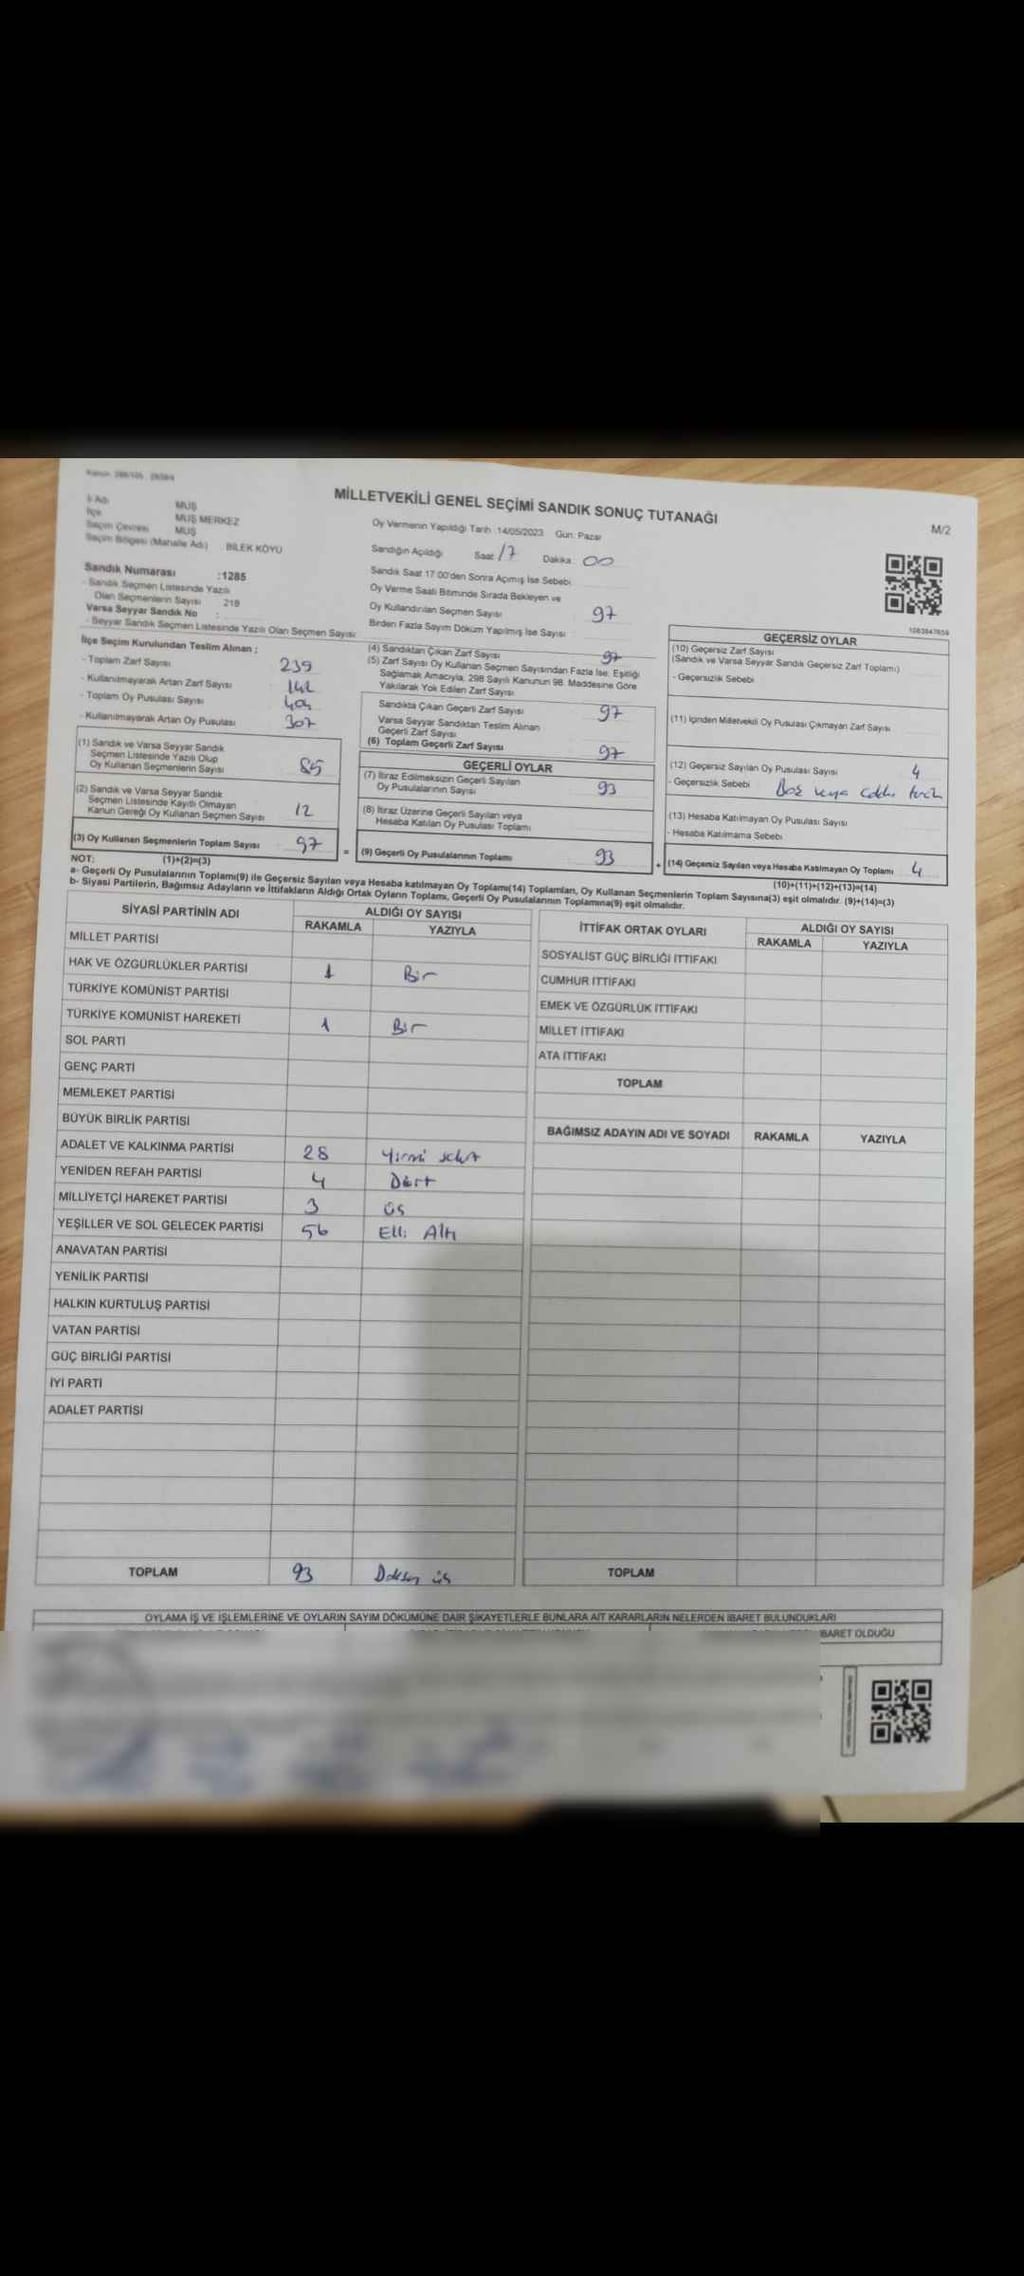 MİLLETVEKİLİ GENEL SEÇİMİ SANDIK SONUÇ TUTANAĞI
M/2
İl Adı MUŞ
İlçe MUŞ MERKEZ
Seçim Çevresi MUŞ
Seçim Bölgesi (Mahalle Adı) BİLEK KÖYÜ
Sandık Numarası :1285
- Sandık Seçmen Listesinde Yazılı
Olan Seçmenlerin Sayısı 218
Varsa Seyyar Sandık No :
- Seyyar Sandık Seçmen Listesinde Yazılı Olan Seçmen Sayısı
Oy Vermenin Yapıldığı Tarih :14/05/2023 Gün: Pazar
Sandığın Açıldığı Saat 17 Dakika 00
Sandık Saat 17:00'den Sonra Açımış İse Sebebi
Oy Verme Saati Bitiminde Sırada Bekleyen ve
Oy Kullandırılan Seçmen Sayısı 97
Birden Fazla Sayım Döküm Yapılmış İse Sayısı
İlçe Seçim Kurulundan Teslim Alınan ;
- Toplam Zarf Sayısı 239
- Kullanılmayarak Artan Zarf Sayısı 142
- Toplam Oy Pusulası Sayısı 404
- Kullanılmayarak Artan Oy Pusulası 307
(1) Sandık ve Varsa Seyyar Sandık
Seçmen Listesinde Yazılı Olup
Oy Kullanan Seçmenlerin Sayısı 85
(2) Sandık ve Varsa Seyyar Sandık
Seçmen Listesinde Kayıtlı Olmayan
Kanun Gereği Oy Kullanan Seçmen Sayısı 12
(3) Oy Kullanan Seçmenlerin Toplam Sayısı 97
(1)+(2)=(3)
(4) Sandıktan Çıkan Zarf Sayısı 97
(5) Zarf Sayısı Oy Kullanan Seçmen Sayısından Fazla İse: Eşitliği
Sağlamak Amacıyla, 298 Sayılı Kanunun 98. Maddesine Göre
Yakılarak Yok Edilen Zarf Sayısı
Sandıkta Çıkan Geçerli Zarf Sayısı 97
Varsa Seyyar Sandıktan Teslim Alınan
Geçerli Zarf Sayısı
(6) Toplam Geçerli Zarf Sayısı 97
GEÇERLİ OYLAR
(7) İtiraz Edilmeksizin Geçerli Sayılan
Oy Pusulalarının Sayısı 93
(8) İtiraz Üzerine Geçerli Sayılan veya
Hesaba Katılan Oy Pusulası Toplamı
= (9) Geçerli Oy Pusulalarının Toplamı 93
1083847659
GEÇERSİZ OYLAR
(10) Geçersiz Zarf Sayısı
(Sandık ve Varsa Seyyar Sandık Geçersiz Zarf Toplamı)
- Geçersizlik Sebebi
(11) İçinden Milletvekili Oy Pusulası Çıkmayan Zarf Sayısı
(12) Geçersiz Sayılan Oy Pusulası Sayısı 4
- Geçersizlik Sebebi Boş veya
(13) Hesaba Katılmayan Oy Pusulası Sayısı
- Hesaba Katılmama Sebebi
+ (14) Geçersiz Sayılan veya Hesaba Katılmayan Oy Toplamı 4
(10)+(11)+(12)+(13)=(14)
NOT:
a- Geçerli Oy Pusulalarının Toplamı(9) ile Geçersiz Sayılan veya Hesaba katılmayan Oy Toplamı(14) Toplamları, Oy Kullanan Seçmenlerin Toplam Sayısına(3) eşit olmalıdır. (9)+(14)=(3)
b- Siyasi Partilerin, Bağımsız Adayların ve İttifakların Aldığı Ortak Oyların Toplamı, Geçerli Oy Pusulalarının Toplamına(9) eşit olmalıdır.
SİYASİ PARTİNİN ADI ALDIĞI OY SAYISI
RAKAMLA YAZIYLA
MİLLET PARTİSİ
HAK VE ÖZGÜRLÜKLER PARTİSİ 1 Bir
TÜRKİYE KOMÜNİST PARTİSİ
TÜRKİYE KOMÜNİST HAREKETİ 1 Bir
SOL PARTİ
GENÇ PARTİ
MEMLEKET PARTİSİ
BÜYÜK BİRLİK PARTİSİ
ADALET VE KALKINMA PARTİSİ 28 Yirmi sekiz
YENİDEN REFAH PARTİSİ 4 Dört
MİLLİYETÇİ HAREKET PARTİSİ 3 Üç
YEŞİLLER VE SOL GELECEK PARTİSİ 56 Elli Altı
ANAVATAN PARTİSİ
YENİLİK PARTİSİ
HALKIN KURTULUŞ PARTİSİ
VATAN PARTİSİ
GÜÇ BİRLİĞİ PARTİSİ
İYİ PARTİ
ADALET PARTİSİ
TOPLAM 93 Doksan üç
İTTİFAK ORTAK OYLARI ALDIĞI OY SAYISI
RAKAMLA YAZIYLA
SOSYALİST GÜÇ BİRLİĞİ İTTİFAKI
CUMHUR İTTİFAKI
EMEK VE ÖZGÜRLÜK İTTİFAKI
MİLLET İTTİFAKI
ATA İTTİFAKI
TOPLAM
BAĞIMSIZ ADAYIN ADI VE SOYADI RAKAMLA YAZIYLA
TOPLAM
OYLAMA İŞ VE İŞLEMLERİNE VE OYLARIN SAYIM DÖKÜMÜNE DAİR ŞİKAYETLERLE BUNLARA AİT KARARLARIN NELERDEN İBARET BULUNDUKLARI
İBARET OLDUĞU